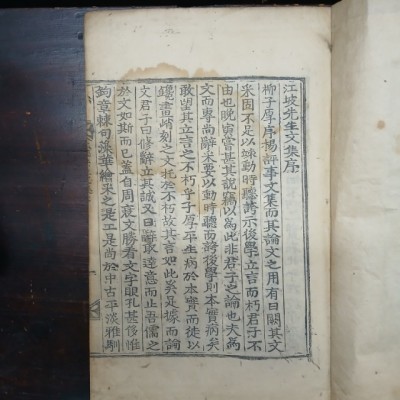 江坡先生文集序
柳子厚序楊評事文集而其論文之用有曰闕其文
采固不足以竦動時聽夸示後學立言而朽君子不
由也晩寅嘗甚其說竊以為此非君子之論也夫為
文而專尚辭采要以動時聽而誇後學則本實病矣
敢望其立言之不朽乎子厚平生病於本實而徒以
峭刻之文托於不朽故其言如此矣是據而論
文君子曰修辭立其誠又曰辭取達意而止吾儒之
於文如斯而已蓋自周衰文勝看文字眼孔甚侈惟
鉤章棘句張華繪采之是工是尚於中古平淡雅馴